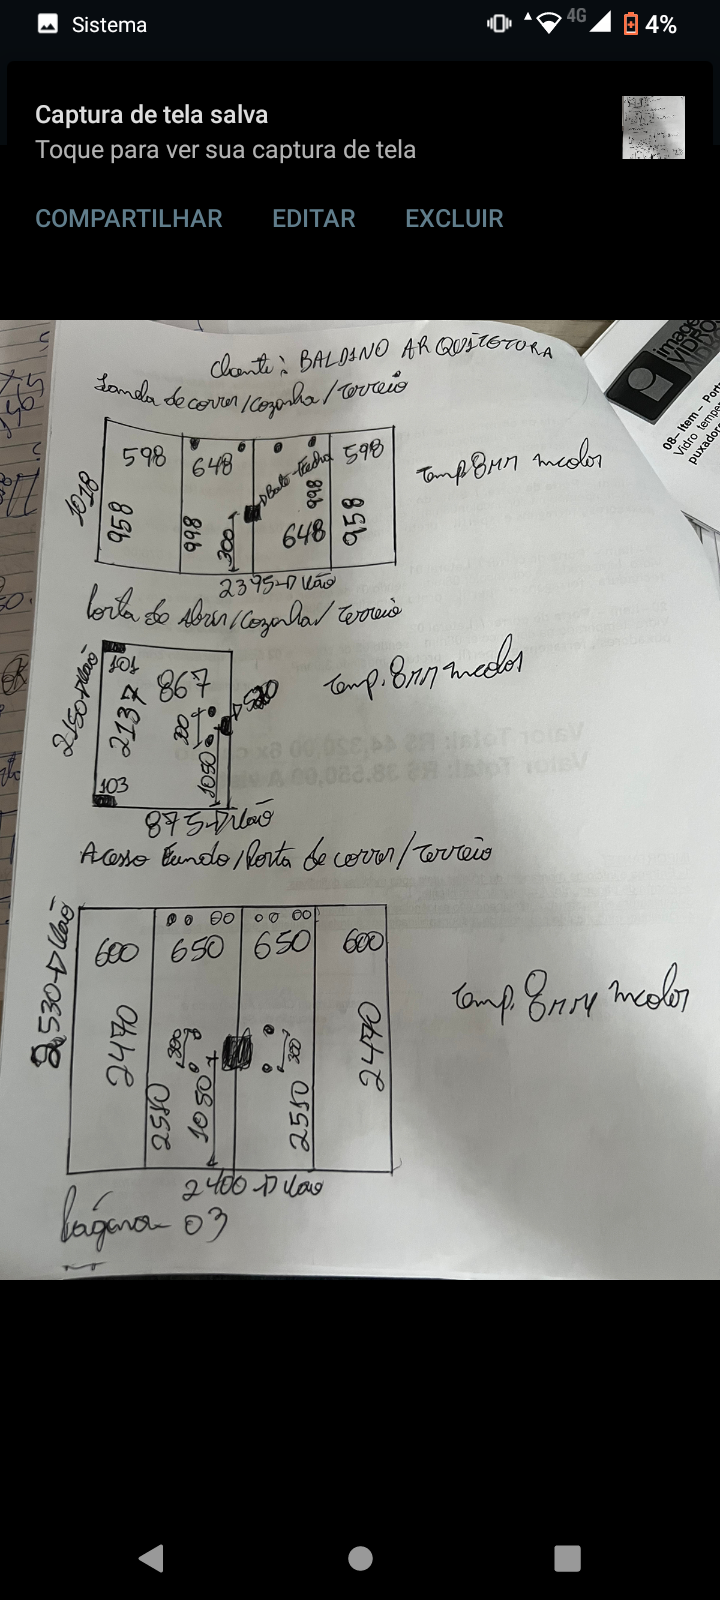 Sistema
4G
4%
Captura de tela salva
Toque para ver sua captura de tela
COMPARTILHAR EDITAR EXCLUIR
Cliente: BALDINO ARQUITETURA
Janela de correr/Cozinha/Terreio
imagem
VIDROS
08- Item – Port
Vidro tempe
puxador
1018
598 648 598
958 998 300 Bate-Fecha 998 648 958
Temp 8mm incolor
2395→Vão
Porta de Abrir/Cozinha/Terreio
2150→Vão
101
2137 867
300 1050 520
103
Temp. 8mm incolor
875→Vão
Acesso Fundo/Porta de correr/Terreio
2530→Vão
600 650 650 600
2470 300 300 2470
2510 1050 2510
Temp. 8mm incolor
2400→Vão
Página 03
Valor Total: R$ 44.320,00 6x
Valor Total: R$ 38.550,00 A vis